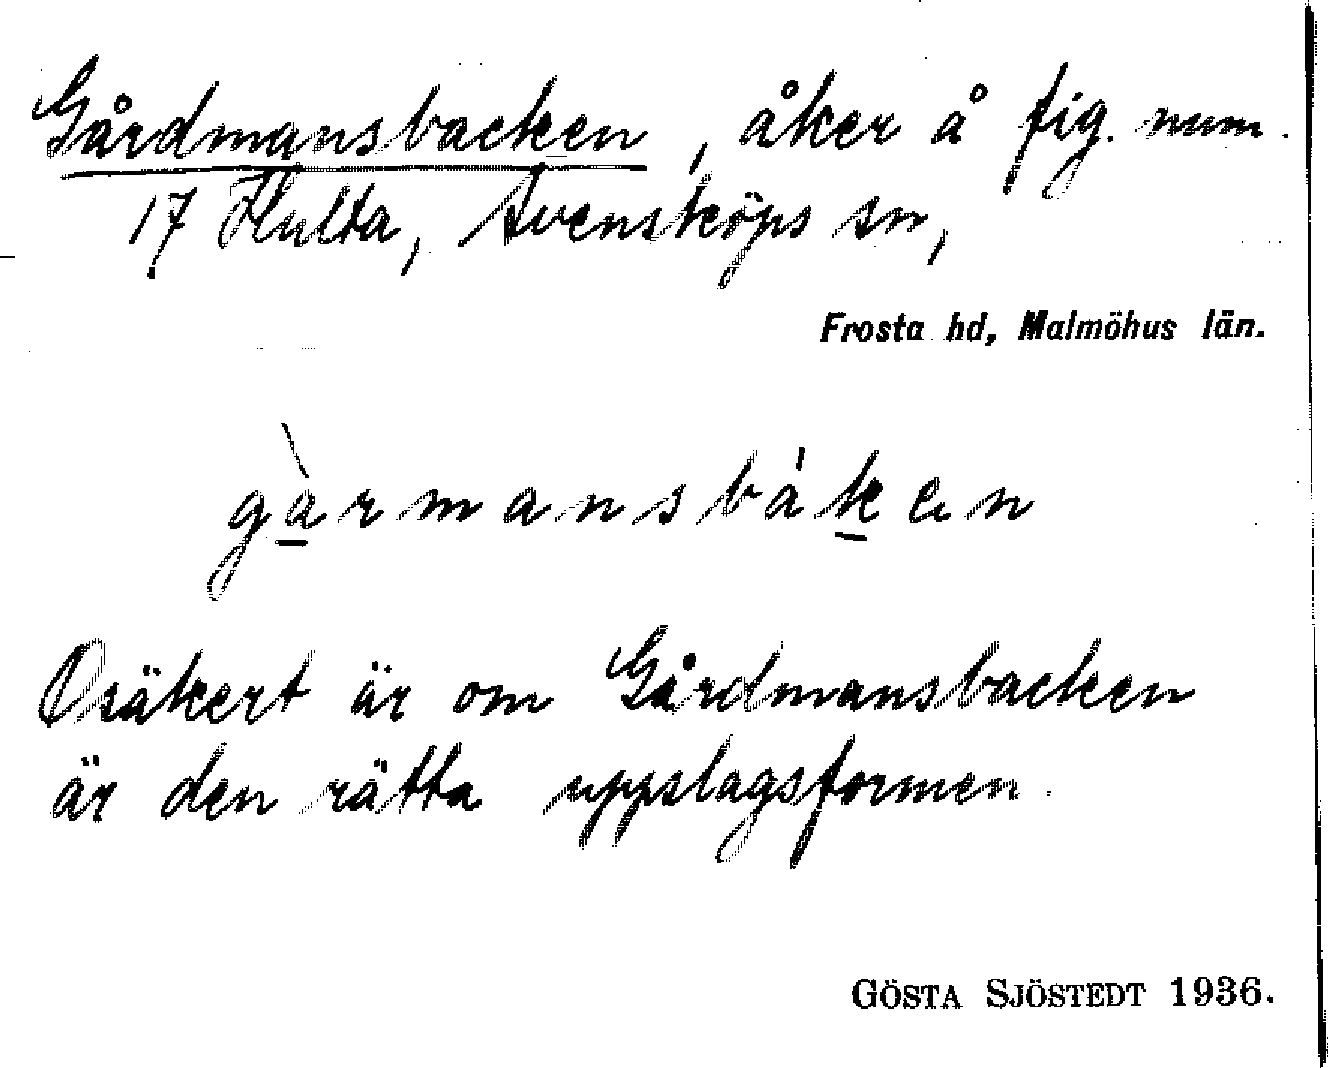 Gårdmansbacken, åker å fig. num.
17 Hulta, Svensköps sn,
Frosta hd, Malmöhus län.
gàrmansbáken
Osäkert är om Gårdmansbacken
är den rätta uppslagsformen.
GÖSTA SJÖSTEDT 1936.